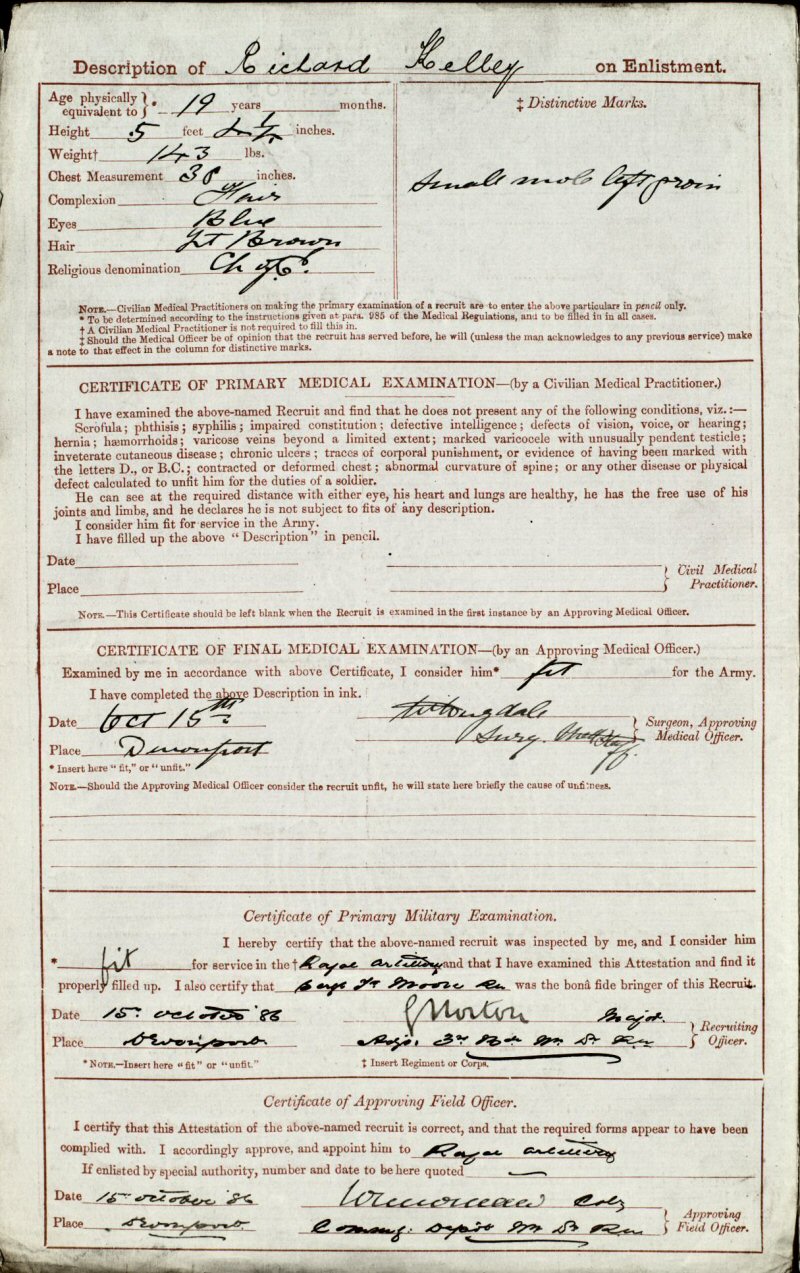 Description of Richard Kelley on Enlistment.
Age physically equivalent to } * 19 years months.
Height 5 feet 4 1/4 inches.
Weight† 143 lbs.
Chest Measurement 38 inches.
Complexion Fair
Eyes Blue
Hair Lt Brown
Religious denomination Ch of Ed.
‡ Distinctive Marks.
Small mole left groin
NOTE.—Civilian Medical Practitioners on making the primary examination of a recruit are to enter the above particulars in pencil only.
* To be determined according to the instructions given at para. 985 of the Medical Regulations, and to be filled in in all cases.
† A Civilian Medical Practitioner is not required to fill this in.
‡ Should the Medical Officer be of opinion that the recruit has served before, he will (unless the man acknowledges to any previous service) make
a note to that effect in the column for distinctive marks.
CERTIFICATE OF PRIMARY MEDICAL EXAMINATION—(by a Civilian Medical Practitioner.)
I have examined the above-named Recruit and find that he does not present any of the following conditions, viz.:—
Scrofula; phthisis; syphilis; impaired constitution; defective intelligence; defects of vision, voice, or hearing;
hernia; hæmorrhoids; varicose veins beyond a limited extent; marked varicocele with unusually pendent testicle;
inveterate cutaneous disease; chronic ulcers; traces of corporal punishment, or evidence of having been marked with
the letters D., or B.C.; contracted or deformed chest; abnormal curvature of spine; or any other disease or physical
defect calculated to unfit him for the duties of a soldier.
He can see at the required distance with either eye, his heart and lungs are healthy, he has the free use of his
joints and limbs, and he declares he is not subject to fits of any description.
I consider him fit for service in the Army.
I have filled up the above "Description" in pencil.
Date
Place
Civil Medical Practitioner.
NOTE.—This Certificate should be left blank when the Recruit is examined in the first instance by an Approving Medical Officer.
CERTIFICATE OF FINAL MEDICAL EXAMINATION—(by an Approving Medical Officer.)
Examined by me in accordance with above Certificate, I consider him* fit for the Army.
I have completed the above Description in ink.
Date Oct 15th
Place Devonport
Surg. Staff
Surgeon, Approving Medical Officer.
* Insert here "fit," or "unfit."
NOTE.—Should the Approving Medical Officer consider the recruit unfit, he will state here briefly the cause of unfitness.
Certificate of Primary Military Examination.
I hereby certify that the above-named recruit was inspected by me, and I consider him
* fit for service in the † Royal Artillery and that I have examined this Attestation and find it
properly filled up. I also certify that Moore was the bonâ fide bringer of this Recruit.
Date 15 October '86 Norton Major
Place Devonport
Recruiting Officer.
* NOTE.—Insert here "fit" or "unfit." ‡ Insert Regiment or Corps.
Certificate of Approving Field Officer.
I certify that this Attestation of the above-named recruit is correct, and that the required forms appear to have been
complied with. I accordingly approve, and appoint him to Royal Artillery
If enlisted by special authority, number and date to be here quoted
Date 15 October 86 Col
Place Devonport Commg. Depôt
Approving Field Officer.